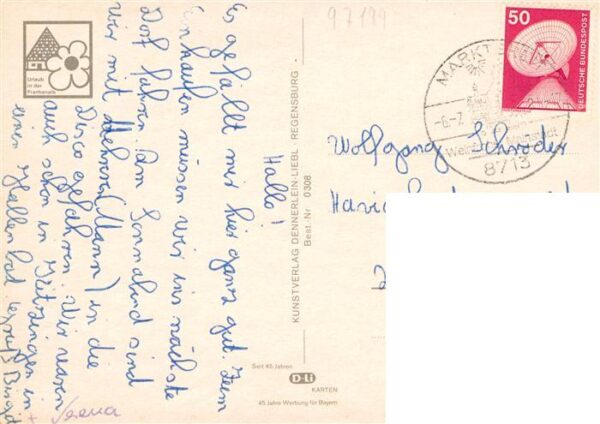 97199
Urlaub
in der
Frankenalb
Hallo!
Es gefällt mir hier ganz gut. Zum
Einkaufen müssen wir ins nächste
Dorf fahren. Am Sonnabend sind
wir mit mehreren (Mann) in die
Disco gefahren. Wir waren
auch schon in Kitzingen in
einem Hallenbad
Birgit
+ Verena
KUNSTVERLAG DENNERLEIN-LIEBL · REGENSBURG ·
Best.-Nr. 0308
Seit 45 Jahren
D-Li
KARTEN
45 Jahre Werbung für Bayern
50
DEUTSCHE BUNDESPOST
MARKT
-6.-7.
8713
Wolfgang Schröder